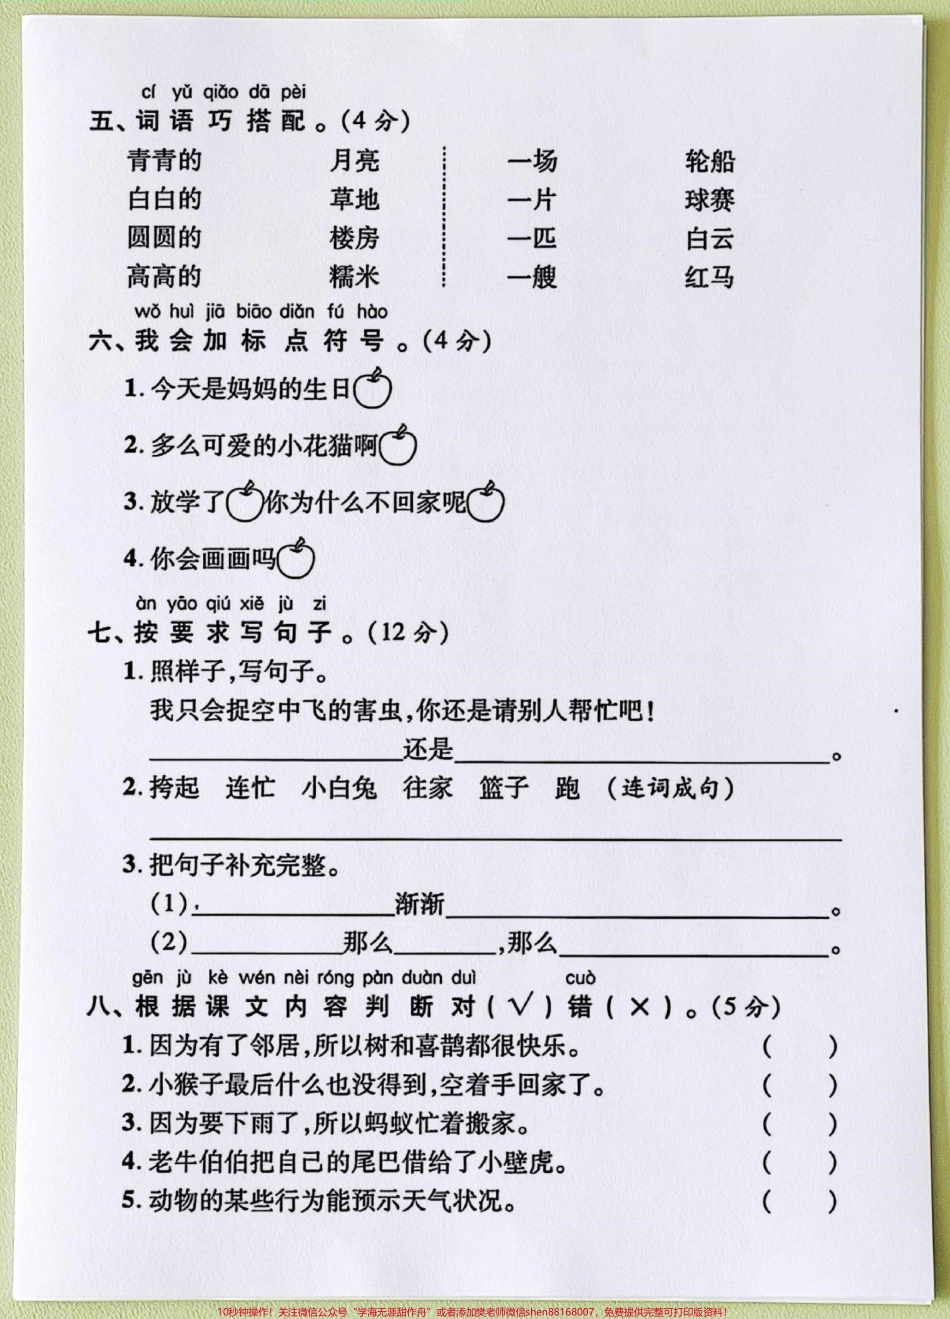 cí yǔ qiǎo dā pèi
五、词语巧搭配。(4分)
青青的 月亮 一场 轮船
白白的 草地 一片 球赛
圆圆的 楼房 一匹 白云
高高的 糯米 一艘 红马
wǒ huì jiā biāo diǎn fú hào
六、我会加标点符号。(4分)
1.今天是妈妈的生日
2.多么可爱的小花猫啊
3.放学了 你为什么不回家呢
4.你会画画吗
àn yāo qiú xiě jù zi
七、按要求写句子。(12分)
1.照样子,写句子。
我只会捉空中飞的害虫,你还是请别人帮忙吧!
____________还是____________。
2.挎起 连忙 小白兔 往家 篮子 跑 (连词成句)
3.把句子补充完整。
(1)____________渐渐____________。
(2)____________那么________,那么____________。
gēn jù kè wén nèi róng pàn duàn duì cuò
八、根据课文内容判断对(√)错(×)。(5分)
1.因为有了邻居,所以树和喜鹊都很快乐。 ( )
2.小猴子最后什么也没得到,空着手回家了。 ( )
3.因为要下雨了,所以蚂蚁忙着搬家。 ( )
4.老牛伯伯把自己的尾巴借给了小壁虎。 ( )
5.动物的某些行为能预示天气状况。 ( )
10秒钟操作！关注微信公众号“学海无涯甜作舟”或者添加樊老师微信shen88168007，免费提供完整可打印版资料！